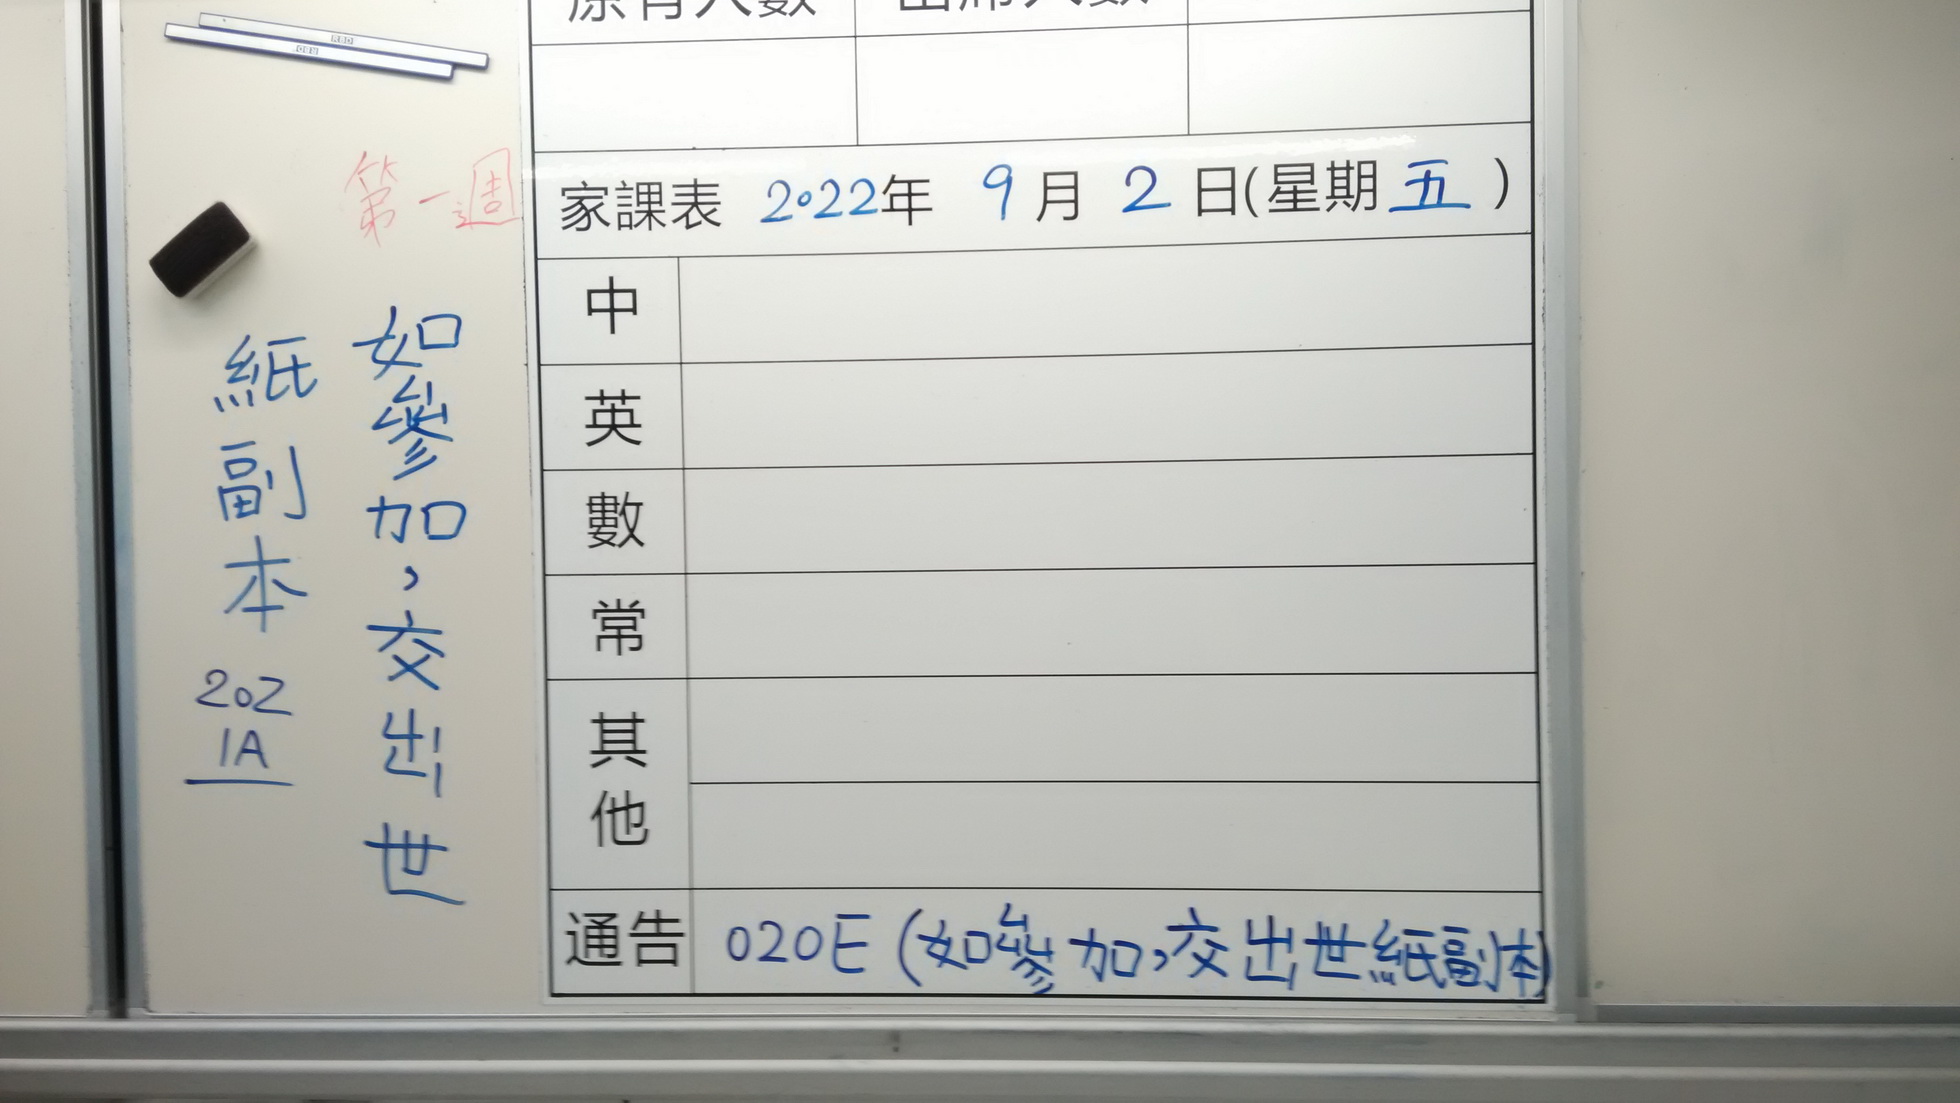 原有人數 出席人數
第一週
家課表 2022年 9月 2日(星期五)
中
英
數
常
其他
通告 020E(如參加,交出世紙副本)
如參加,交出世
紙副本
202
1A